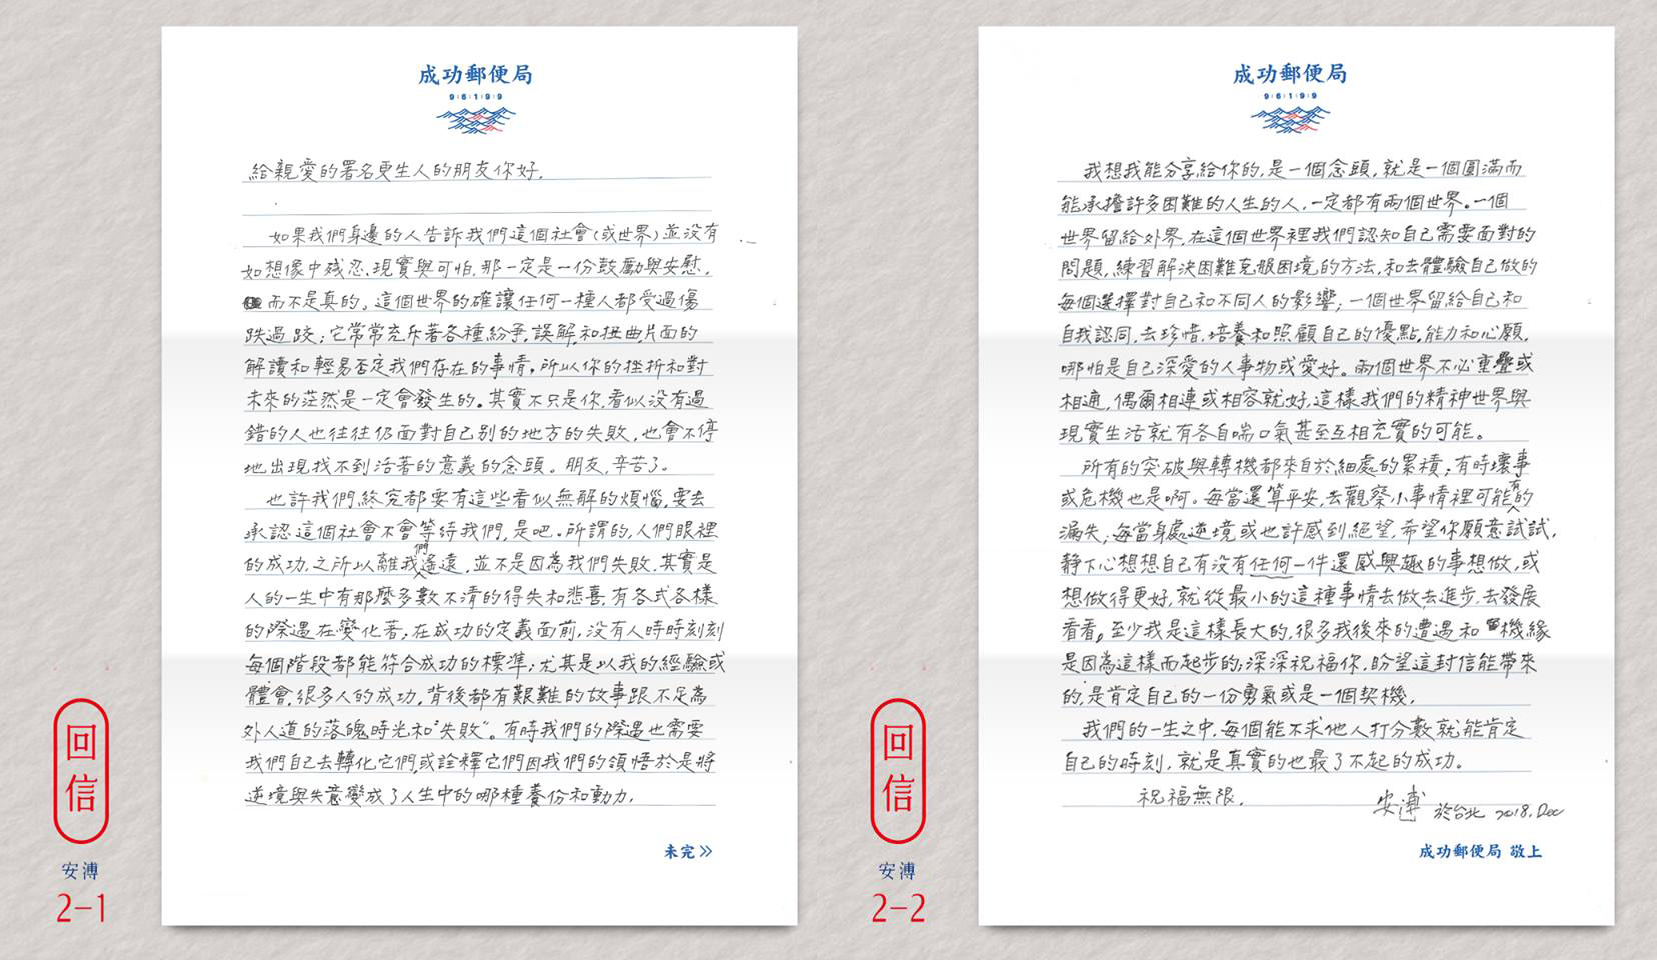 成功郵便局
96199
給親愛的署名更生人的朋友你好.
如果我們身邊的人告訴我們這個社會(或世界)並沒有
如想像中殘忍、現實與可怕,那一定是一份鼓勵與安慰,
而不是真的。這個世界的確讓任何一種人都受過傷
跌過跤;它常常充斥著各種紛爭,誤解,和扭曲,片面的
解讀和輕易否定我們存在的事情。所以你的挫折和對
未來的茫然是一定會發生的。其實不只是你,看似沒有過
錯的人也往往仍面對自己別的地方的失敗,也會不停
地出現找不到活著的意義的念頭。朋友,辛苦了。
也許我們終究都要有這些看似無解的煩惱,要去
承認這個社會不會等待我們,是吧。所謂的,人們眼裡
的成功,之所以離我們遙遠,並不是因為我們失敗,其實是
人的一生中有那麼多數不清的得失和悲喜,有各式各樣
的際遇在變化著;在成功的定義面前,沒有人時時刻刻
每個階段都能符合成功的標準;尤其是以我的經驗或
體會,很多人的成功,背後都有艱難的故事跟不足為
外人道的落魄時光和"失敗"。有時我們的際遇也需要
我們自己去轉化它們,或詮釋它們因我們的領悟於是將
逆境與失意變成了人生中的哪種養份和動力.
未完
回信
安溥
2-1
成功郵便局
96199
我想我能分享給你的,是一個念頭,就是一個圓滿而
能承擔許多困難的人生的人,一定都有兩個世界。一個
世界留給外界,在這個世界裡我們認知自己需要面對的
問題,練習解決困難克服困境的方法,和去體驗自己做的
每個選擇對自己和不同人的影響;一個世界留給自己和
自我認同,去珍惜,培養和照顧自己的優點,能力和心願,
哪怕是自己深愛的人事物或愛好。兩個世界不必重疊或
相通,偶爾相連或相容就好,這樣我們的精神世界與
現實生活就有各自喘口氣甚至互相充實的可能。
所有的突破與轉機都來自於細處的累積;有時壞事
或危機也是啊。每當還算平安,去觀察小事情裡可能有的
漏失,每當身處逆境或也許感到絕望,希望你願意試試,
靜下心想想自己有沒有任何一件還感興趣的事想做,或
想做得更好,就從最小的這種事情去做,去進步,去發展
看看。至少我是這樣長大的,很多我後來的遭遇和機緣
是因為這樣而起步的;深深祝福你,盼望這封信能帶來
的,是肯定自己的一份勇氣或是一個契機.
我們的一生之中,每個能不求他人打分數就能肯定
自己的時刻,就是真實的也最了不起的成功。
祝福無限.
安溥 於台北 2018.Dec
成功郵便局 敬上
回信
安溥
2-2